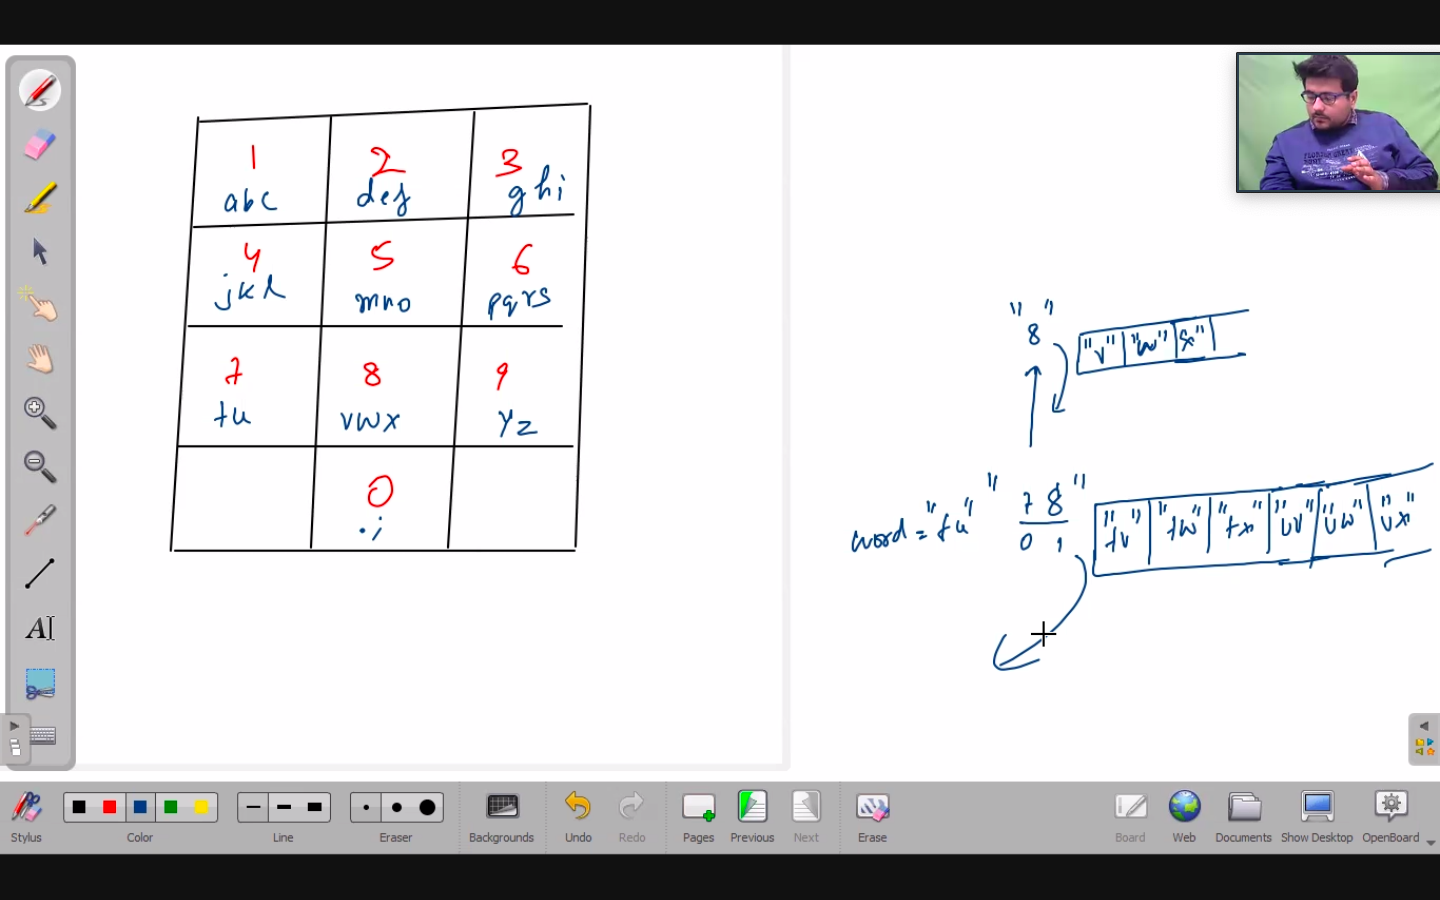 1 2 3
abc def ghi
4 5 6
jkl mno pqrs
7 8 9
tu vwx yz
0
. ;
"8" "v" "w" "x"
word = "tu" "78" "tv" "tw" "tx" "uv" "uw" "ux"
0 1
A
Stylus Color Line Eraser Backgrounds Undo Redo Pages Previous Next Erase Board Web Documents Show Desktop OpenBoard